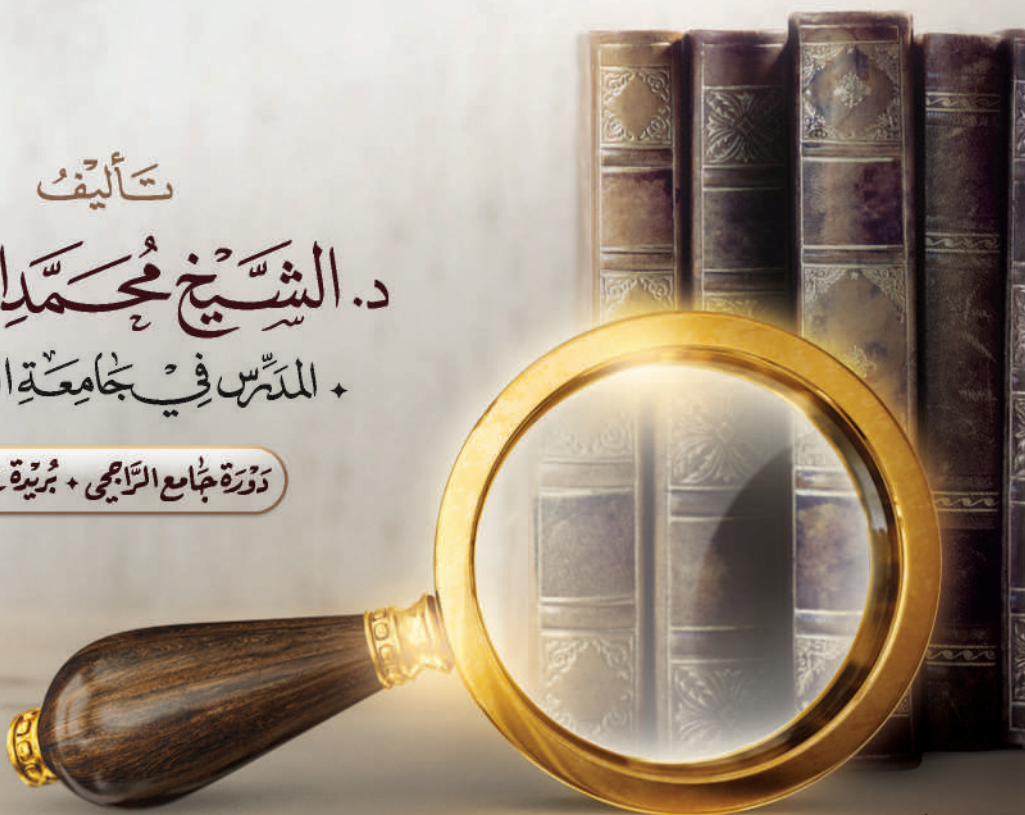 تَأليفُ
د. الشَّيْخ مُحَمَّد
✦ المدَرِّس فِيْ جَامِعَةِ
دَوْرَة جَامع الرَّاجحي ✦ بُرَيْدَة